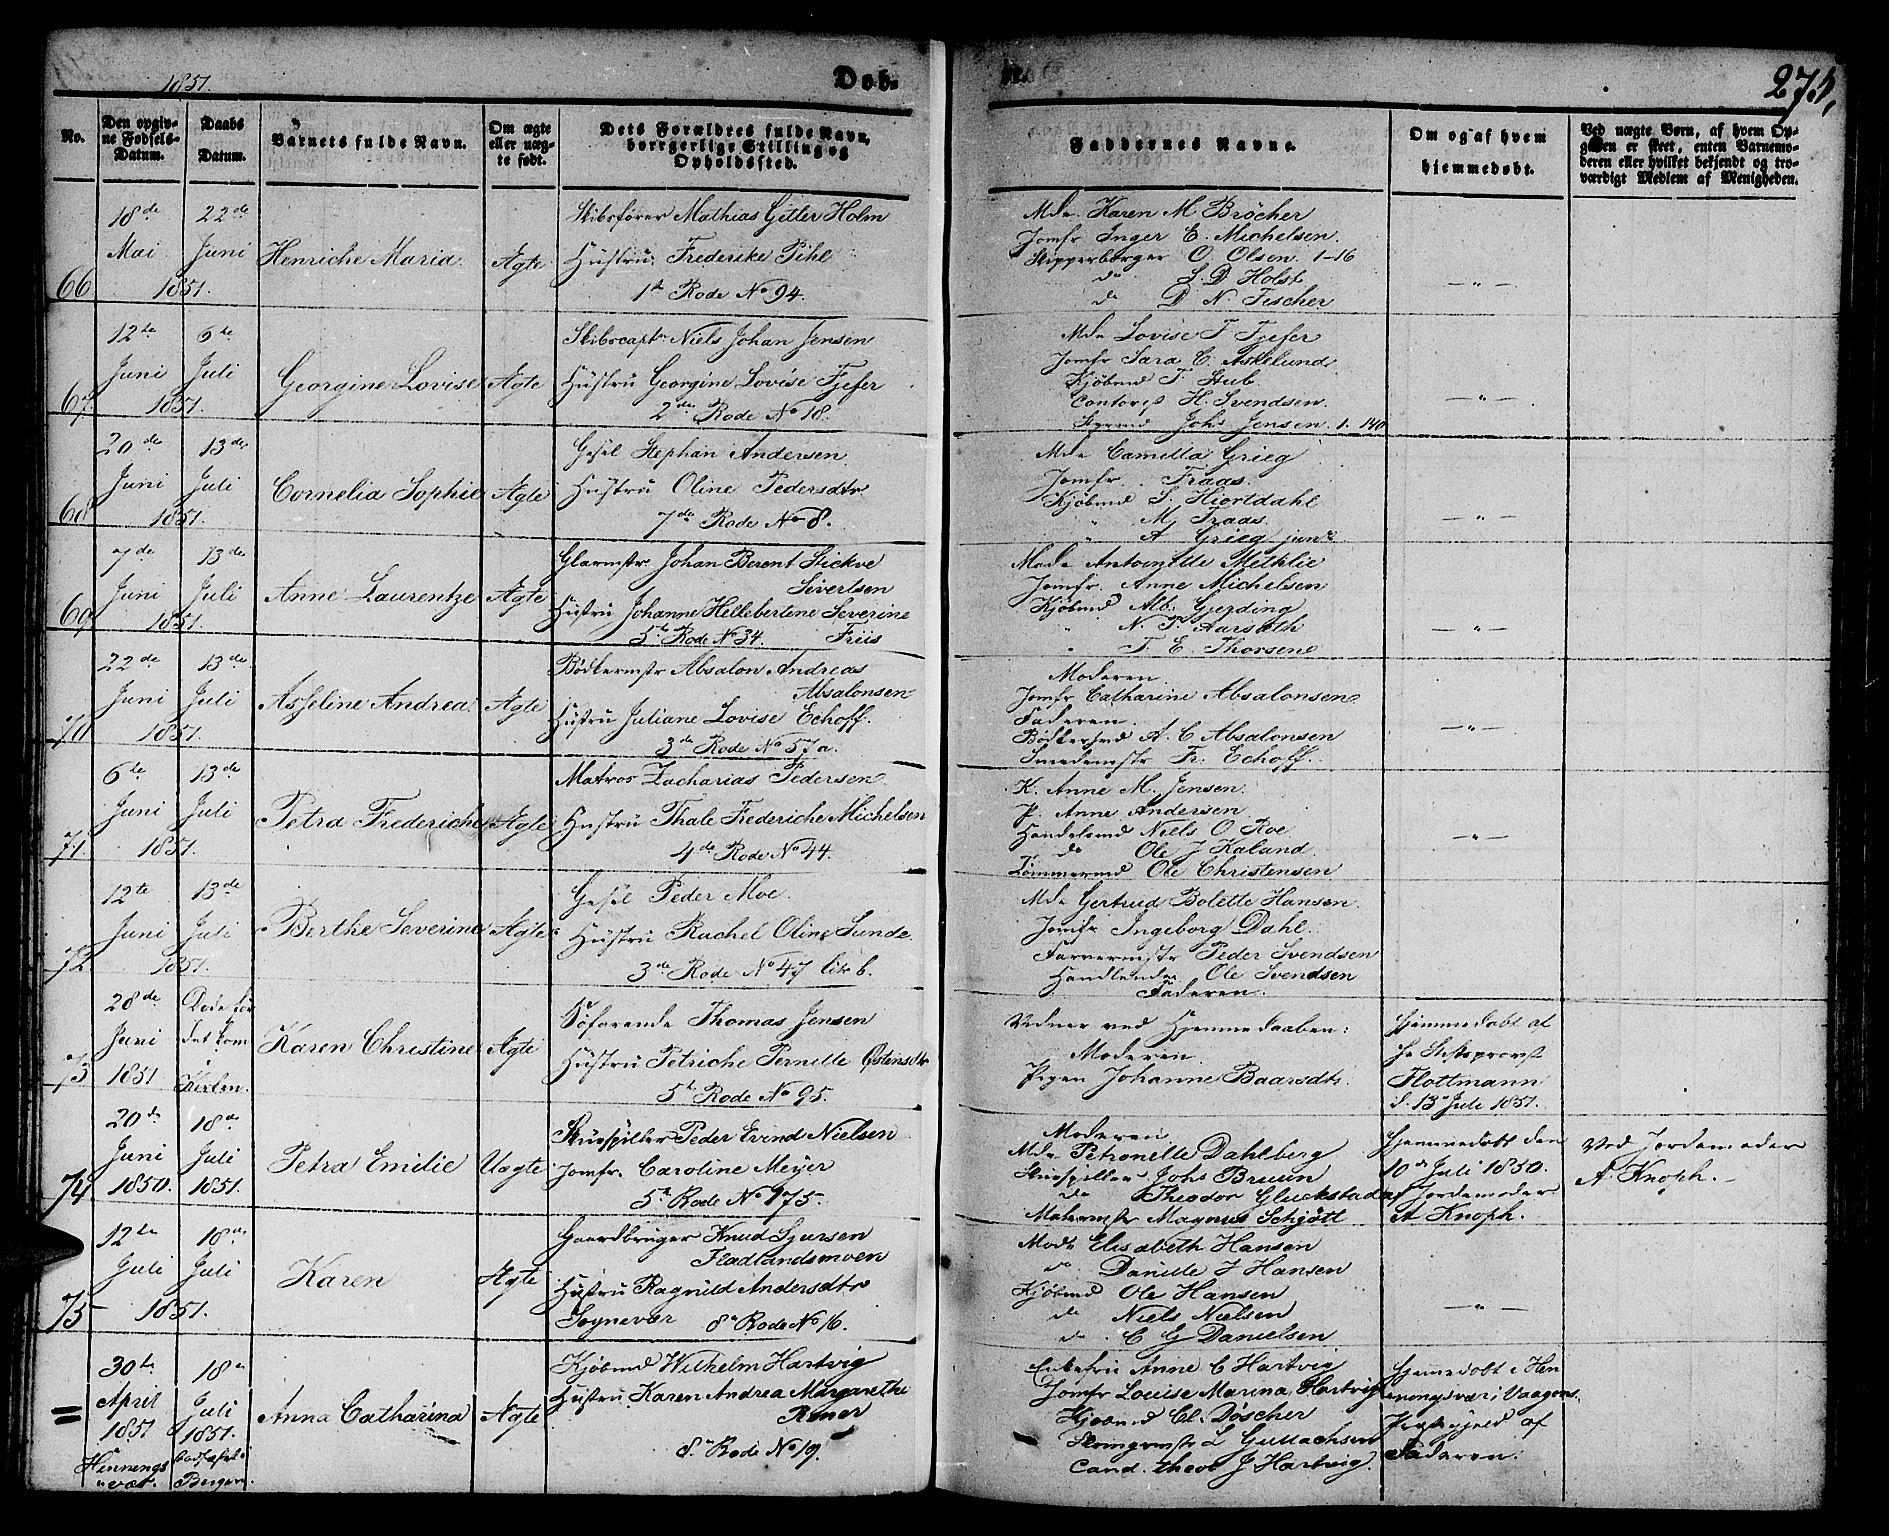 1851.
Døb-
te.
271.
No.
Den opgivne Fødsels-Datum.
Daabs Datum.
Barnets fulde Navn.
Om ægte eller uægte født.
Dets Forældres fulde Navn, borgerlige Stilling og Opholdssted.
Faddernes Navne.
Om og af hvem hjemmedøbt.
Ved uægte Børn, af hvem Opgaven er skeet, enten Barnemoderen eller hvilket bekjendt og troværdigt Medlem af Menigheden.
66
18de Mai 1851.
22de Juni
Henriche Maria
Ægte
Skibsfører Mathias Gitler Holm
Hustru Frederike Pihl
1ste Rode No 94.
Mde. Karen M Bröcher
Jomfr Inger E. Michelsen.
Skipperborger O. Olsen 1-16
do S. D Holst
do D N. Fischer
— " —
67
12te Juni 1851.
6te Juli
Georgine Lovise
Ægte
Skibscaptn Niels Johan Jensen
Hustru Georgine Lovise Fjefer
2den Rode No 18.
Mde Lovise T Fjefer
Jomfr Sara C. Askelund.
Kjøbmd T. Stub.
Contorist H. Svendsen.
Styrmd Johs Jensen. 1-140
— " —
68
20de Juni 1851.
13de Juli
Cornelia Sophie
Ægte
Gesel Stephan Andersen
Hustru Oline Pedersdtr
7de Rode No 8.
Mde Camilla Grieg
Jomfr. Traas.
Kjøbmd S. Hiortdahl
" M. Traas.
" A Grieg junr.
— " —
69
7de Juni 1851.
13de Juli
Anne Laurentze
Ægte
Glarmstr Johan Berent Stickve
Sivertsen
Hustru Johanne Hellebertene Severine
5te Rode No 34. Friis
Mode Antoinette Methlie
Jomfr. Anne Michelsen
Kjøbmd Alb. Gjerding
" N. T. Aarsæth
" T. E. Thorsene
— " —
70
22de Juni 1851.
13de Juli
Asseline Andrea
Ægte
Bødkermstr Absalon Andreas
Absalonsen
Hustru Juliane Lovise Echoff.
3de Rode No 57a.
Moderen.
Jomfr Catharine Absalonsen
Faderen.
Bødkersvd A. C Absalonsen
Smedemstr Fr. Echoff.
— " —
71.
6te Juni 1851.
13de Juli
Petra Frederiche
Ægte
Matros Zacharias Pedersen
Hustru Thale Frederiche Michelsen
4de Rode No 44.
K. Anne M. Jensen.
P. Anne Andersen
Handelsmd Niels O Roe
do Ole J Kaland.
Tømmermd Ole Christensen
— " —
72
12te Juni 1851.
13de Juli
Berthe Severine
Ægte
Gesel Peder Moe.
Hustru Rachel Oline Sunde.
3de Rode No 47 litr b.
Mde Gertrud Bolette Hansen.
Jomfr Ingeborg Dahl.
Farvermstr Peder Svendsen
Handlende Ole Svendsen
Faderen.
73
28de Juni 1851
Døde før det kom i Kirken.
Karen Christine
Ægte
Söfarende Thomas Jensen
Hustru Petriche Pernille Østensdtr
5te Rode No 95.
Vidner ved Hjemmedaaben:
Moderen.
Pigen Johanne Baarsdtr.
Hjemmedøbt af
Hr Stiftsprovst
Flottmann
d. 13de Juli 1851.
74
20de Juni 1850.
18de Juli 1851.
Petra Emilie
Uægte
Skuespiller Peder Evind Nielsen
Jomfr. Caroline Meyer
5te Rode No 175.
Moderen.
Mde. Petronelle Dahlberg
Skuespiller Johs Bruun
do Theodor Gluckstad
Malermstr Magnus Schjött
Hjemmedøbt den
10de Juli 1850.
af Jordemoder
A Knoph.
Ved Jordemoder
A. Knoph.
75
12te Juli 1851.
18de Juli
Karen
Ægte
Gaardbruger Knud Sjursen
Fladlandsmoen
Hustru Ragnild Andersdtr
Sognevær 8de Rode No 16.
Mode Elisabeth Hansen
do Danille J Hansen
Kjøbmd Ole Hansen
do Niels Nielsen
do C G Danielsen
— " —
=
30te April 1851 Hennings vær.
18de Juli 1851. i Bergen.
Anna Catharina
Ægte
Kjøbmd Wilhelm Hartvig
Hustru Karen Andrea Margrethe
8de Rode No 19.
Enkefru Anne C Hartvig
Jomfr Louise Marina Hartvig
Kjøbmd Cl. Döscher
L Gullachsen
Cand. theol J Hartvig.
Hjemmedøbt i Hen
ningsvær i Vaagens
Præstegjeld af
Faderen.